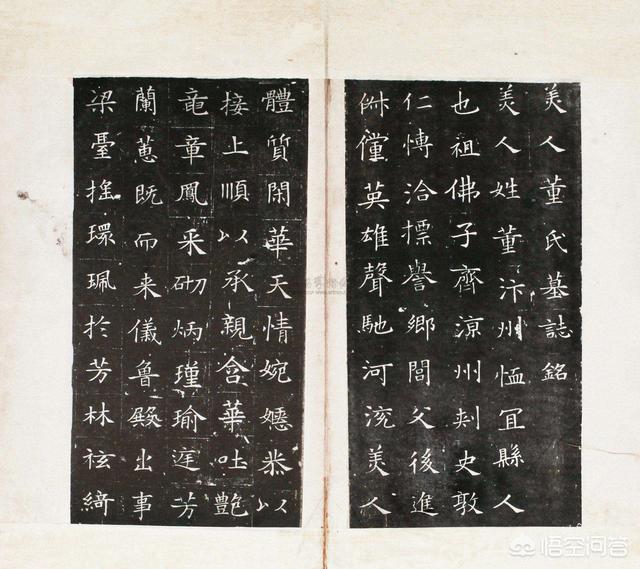 美人董氏墓誌銘
美人姓董汴州恤宜縣人
也祖佛子齊涼州刺史敦
仁博洽摽譽鄉閭父後進
俶儻英雄聲馳河渷美人
體質閑華天情婉嫕恭以
接上順以承親含華吐艷
竜章鳳采砌炳瑾瑜庭芳
蘭蕙既而来儀魯殿出事
梁臺搖環珮於芳林袨綺
悟空问答